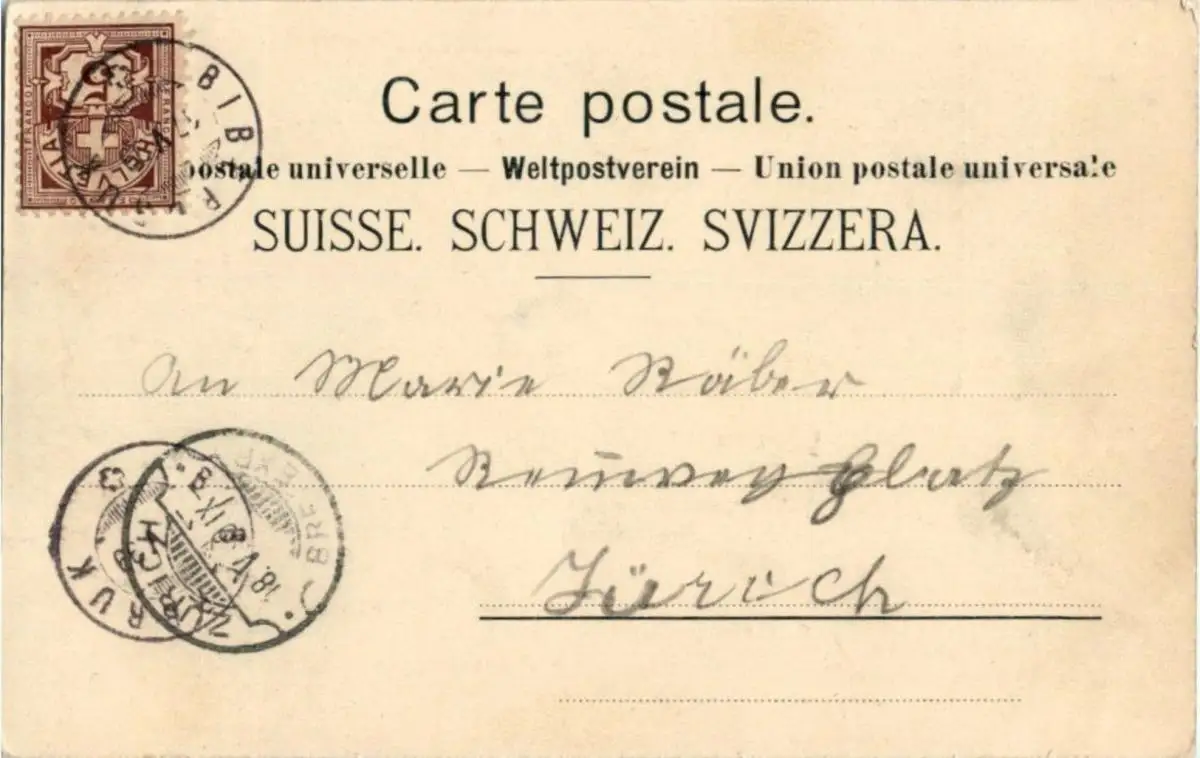 Carte postale.
postale universelle — Weltpostverein — Union postale universale
SUISSE. SCHWEIZ. SVIZZERA.
An Marie Räber
Rennweg Platz
Zürich
BIB
ZÜRICH
BRUK